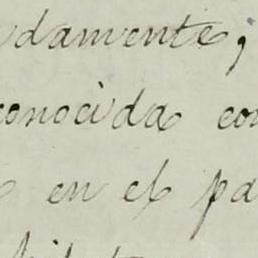 damente;
conocida con
en el pa